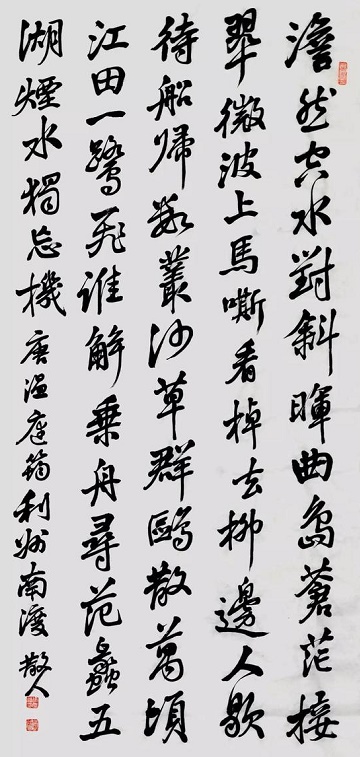 澹然空水對斜暉曲島蒼茫接
翠微波上馬嘶看棹去柳邊人歇
待船歸數叢沙草群鷗散萬頃
江田一鷺飛誰解乘舟尋范蠡五
湖煙水獨忘機 唐温庭筠利州南渡 散人